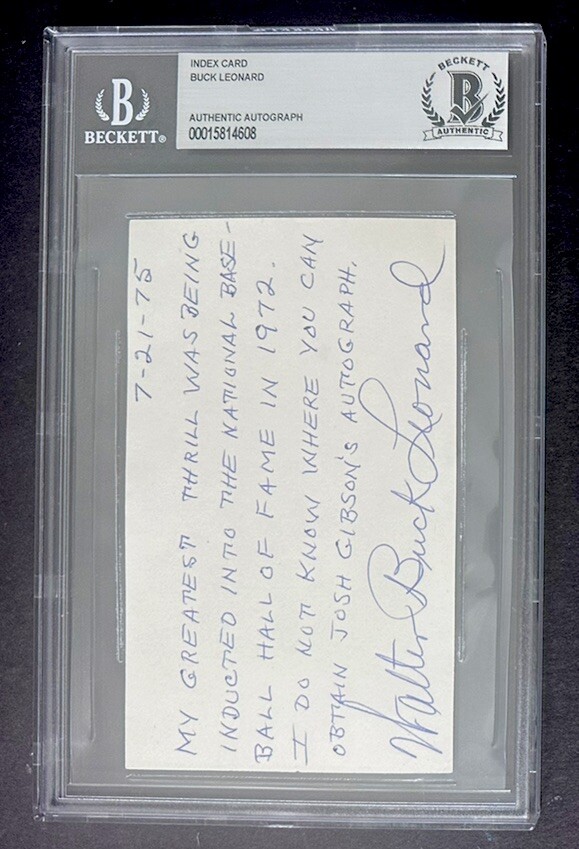 INDEX CARD
BUCK LEONARD
AUTHENTIC AUTOGRAPH
00015814608
B
BECKETT®
BECKETT
B
AUTHENTIC
7-21-75
MY GREATEST THRILL WAS BEING
INDUCTED INTO THE NATIONAL BASE-
BALL HALL OF FAME IN 1972.
I DO NOT KNOW WHERE YOU CAN
OBTAIN JOSH GIBSON'S AUTOGRAPH.
Walter Buck Leonard